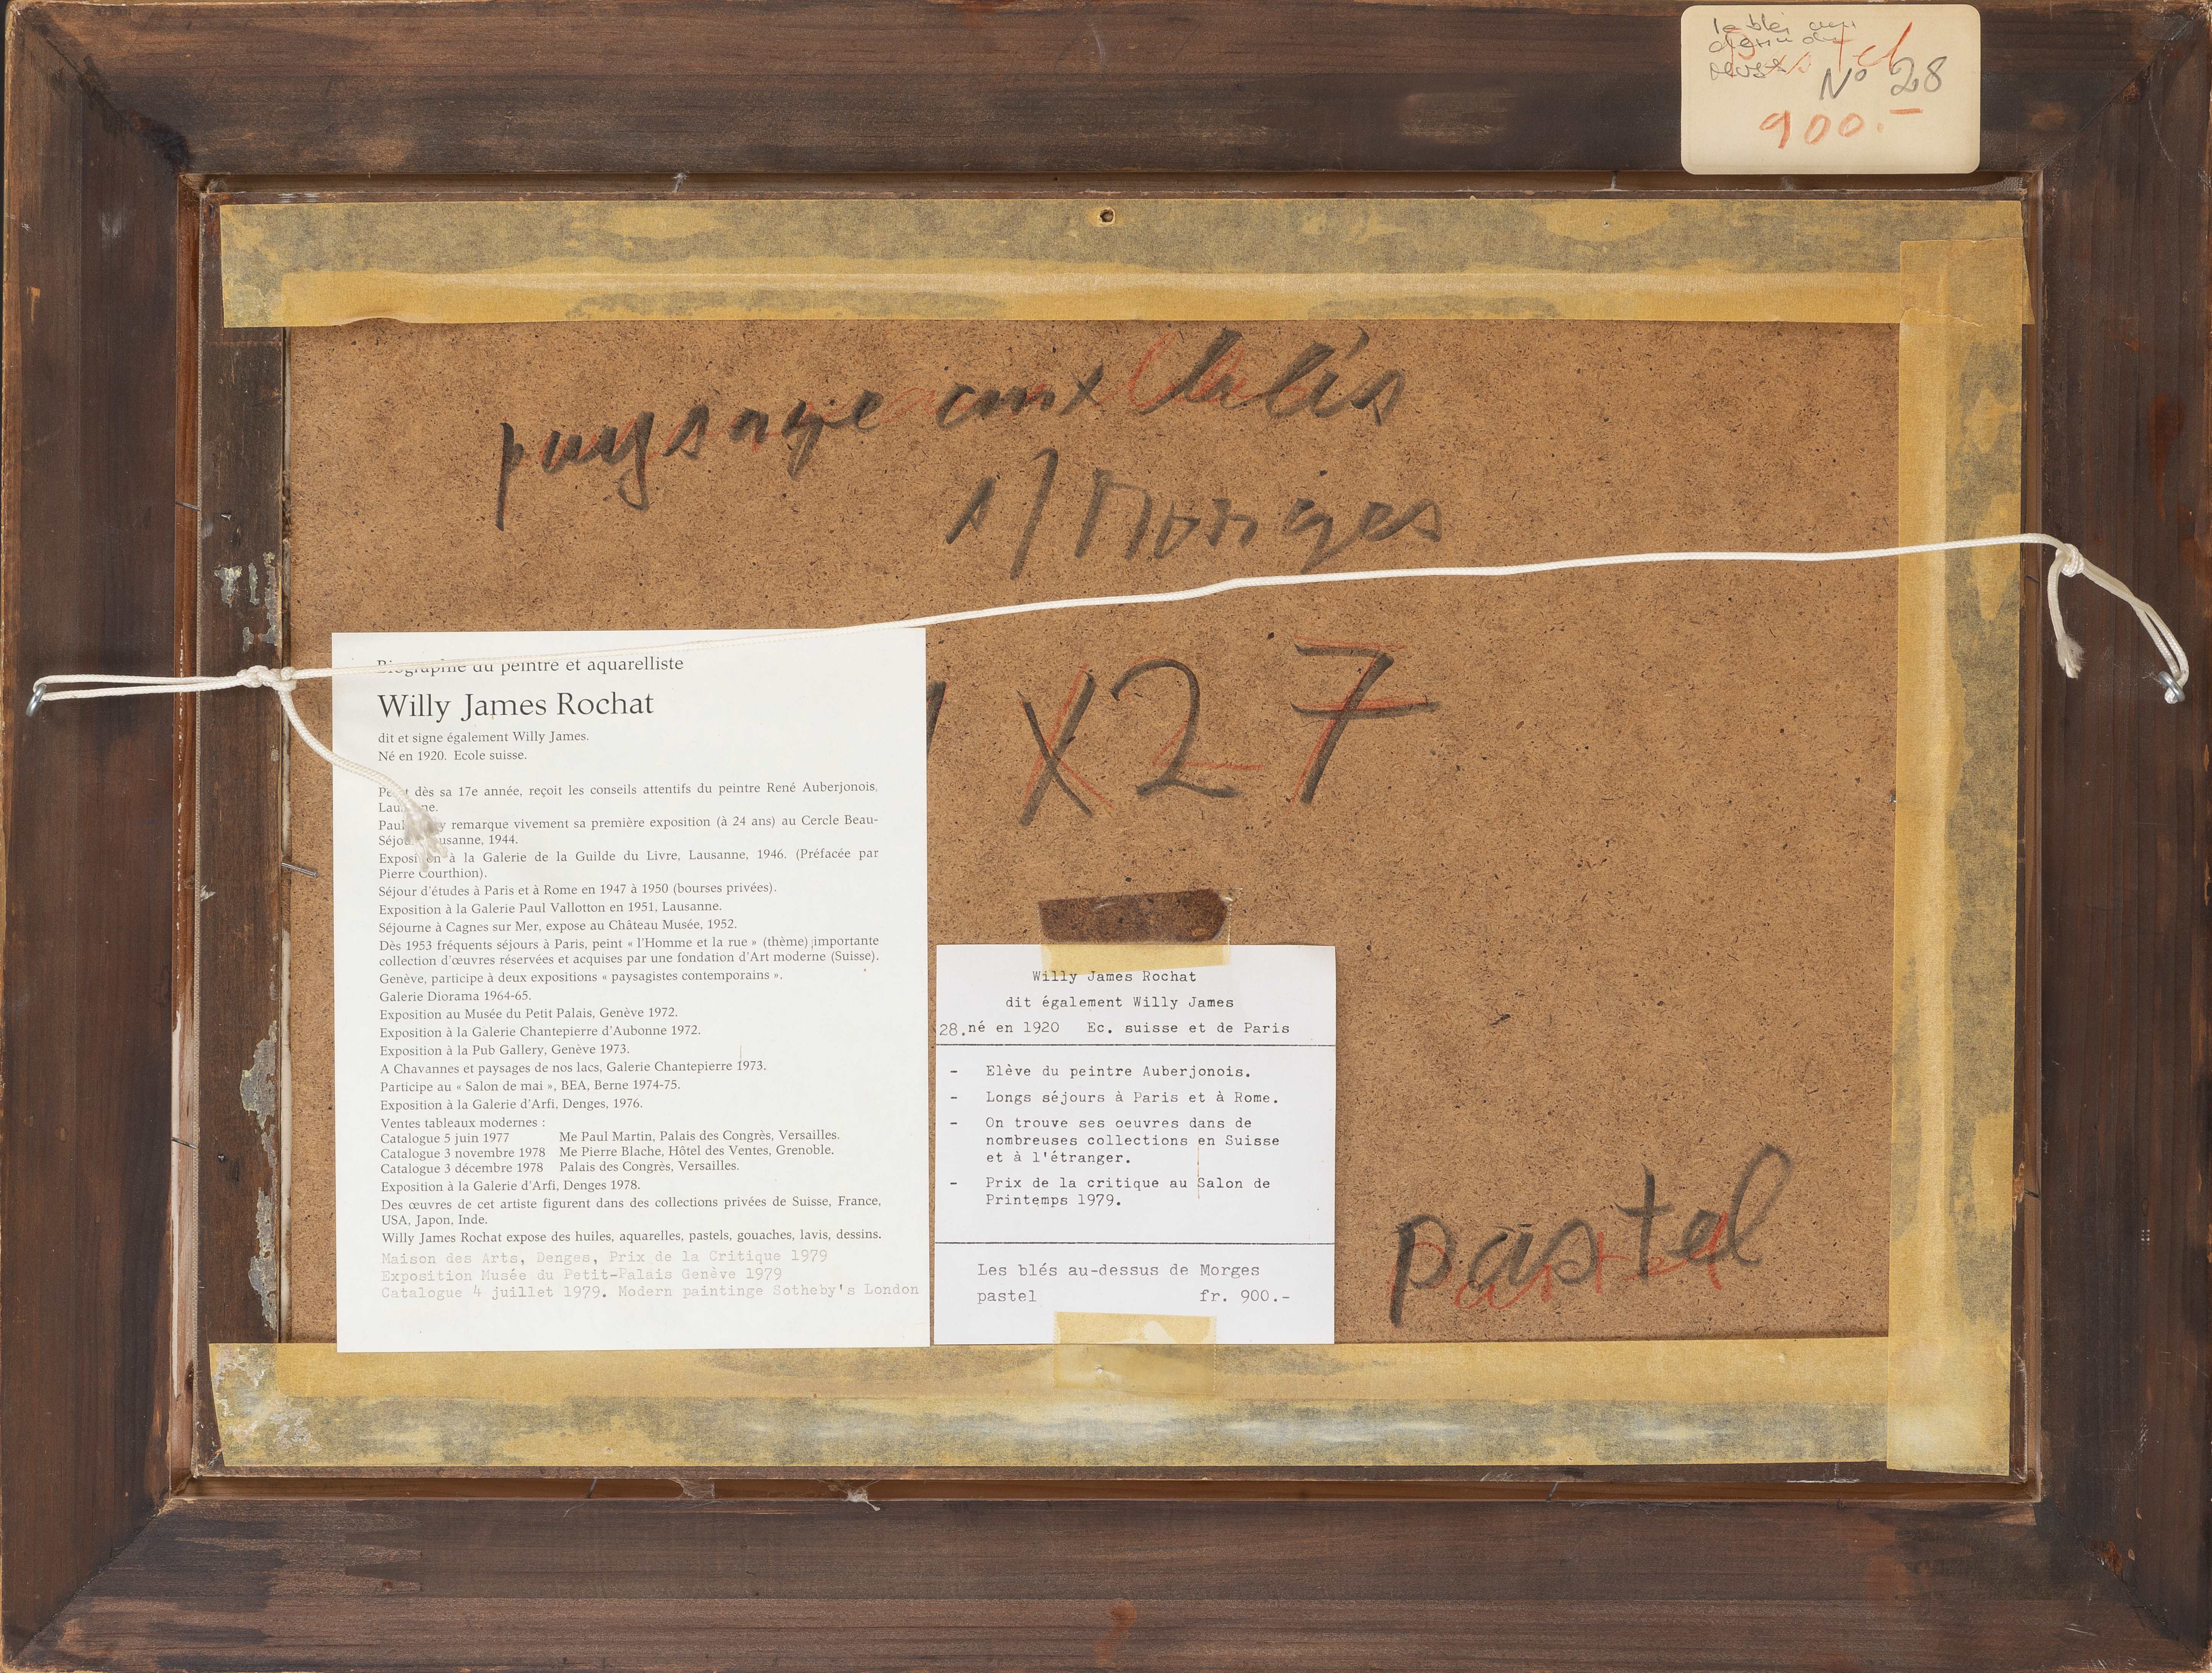 Pastel
N° 28
900.-
paysage aux blés
s/ Morges
x 27
Biographie du peintre et aquarelliste
Willy James Rochat
dit et signe également Willy James.
Né en 1920. Ecole suisse.
dès sa 17e année, reçoit les conseils attentifs du peintre René Auberjonois,
Paul remarque vivement sa première exposition (à 24 ans) au Cercle Beau-
Séjour, Lausanne, 1944.
Exposition à la Galerie de la Guilde du Livre, Lausanne, 1946. (Préfacée par
Pierre Courthion).
Séjour d'études à Paris et à Rome en 1947 à 1950 (bourses privées).
Exposition à la Galerie Paul Vallotton en 1951, Lausanne.
Séjourne à Cagnes sur Mer, expose au Château Musée, 1952.
Dès 1953 fréquents séjours à Paris, peint « l'Homme et la rue » (thème) importante
collection d'œuvres réservées et acquises par une fondation d'Art moderne (Suisse).
Genève, participe à deux expositions « paysagistes contemporains ».
Galerie Diorama 1964-65.
Exposition au Musée du Petit Palais, Genève 1972.
Exposition à la Galerie Chantepierre d'Aubonne 1972.
Exposition à la Pub Gallery, Genève 1973.
A Chavannes et paysages de nos lacs, Galerie Chantepierre 1973.
Participe au « Salon de mai », BEA, Berne 1974-75.
Exposition à la Galerie d'Arfi, Denges, 1976.
Ventes tableaux modernes :
Catalogue 5 juin 1977 Me Paul Martin, Palais des Congrès, Versailles.
Catalogue 3 novembre 1978 Me Pierre Blache, Hôtel des Ventes, Grenoble.
Catalogue 3 décembre 1978 Palais des Congrès, Versailles.
Exposition à la Galerie d'Arfi, Denges 1978.
Des œuvres de cet artiste figurent dans des collections privées de Suisse, France,
USA, Japon, Inde.
Willy James Rochat expose des huiles, aquarelles, pastels, gouaches, lavis, dessins.
Maison des Arts, Denges, Prix de la Critique 1979
Exposition Musée du Petit-Palais Genève 1979
Catalogue 4 juillet 1979. Modern paintinge Sotheby's London
Willy James Rochat
dit également Willy James
28.né en 1920 Ec. suisse et de Paris
- Elève du peintre Auberjonois.
- Longs séjours à Paris et à Rome.
- On trouve ses oeuvres dans de
nombreuses collections en Suisse
et à l'étranger.
- Prix de la critique au Salon de
Printemps 1979.
Les blés au-dessus de Morges
pastel fr. 900.-
pastel